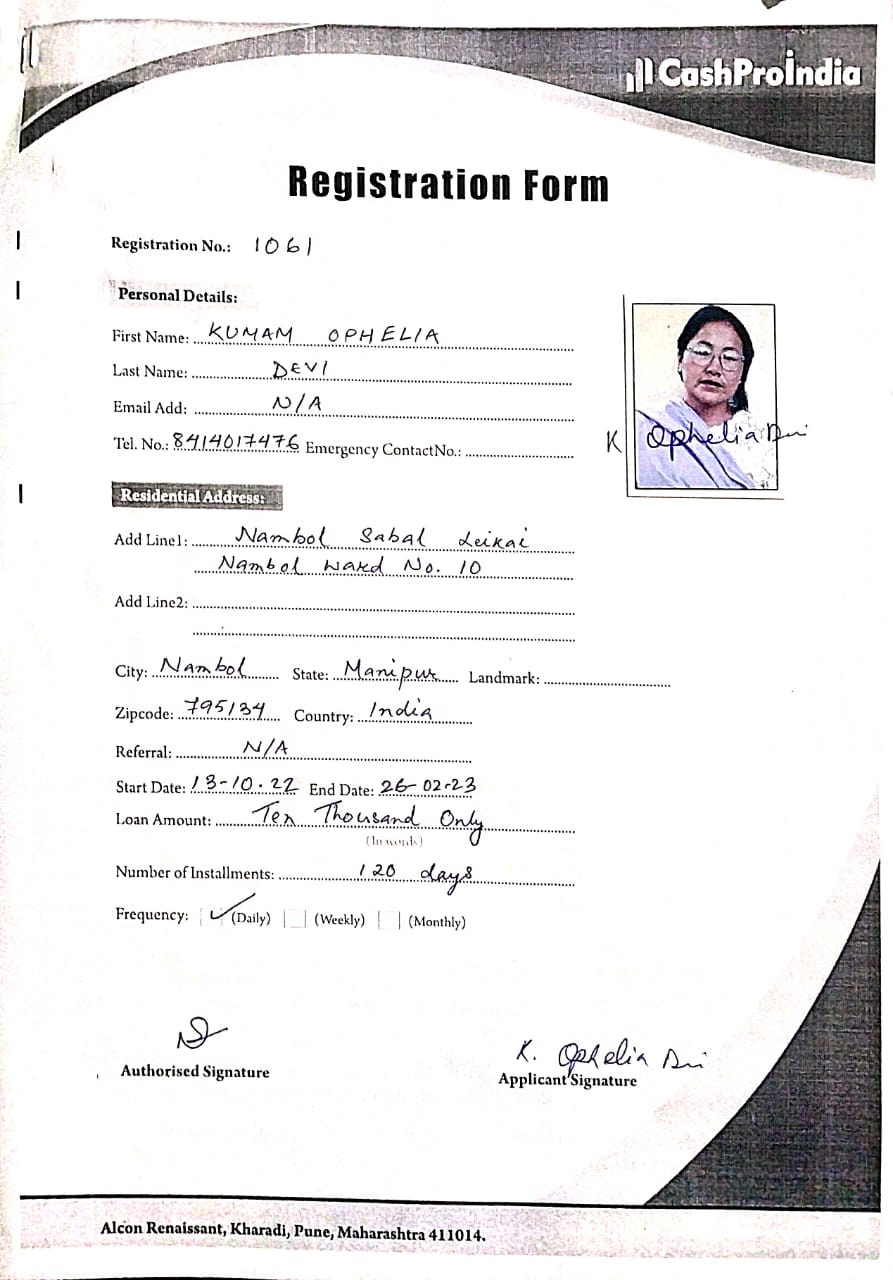 CashProIndia
Registration Form
Registration No.: 1061
Personal Details:
First Name: KUMAM OPHELIA
Last Name: DEVI
Email Add: N/A
Tel. No.: 8414017476 Emergency ContactNo.:
K Ophelia Devi
Residential Address:
Add Line1: Nambol Sabal Leikai
Nambol Ward No. 10
Add Line2:
City: Nambol State: Manipur Landmark:
Zipcode: 795134 Country: India
Referral: N/A
Start Date: 13-10.22 End Date: 26-02-23
Loan Amount: Ten Thousand Only
(In words)
Number of Installments: 120 days
Frequency: (Daily) (Weekly) (Monthly)
K. Ophelia Devi
Authorised Signature Applicant Signature
Alcon Renaissant, Kharadi, Pune, Maharashtra 411014.